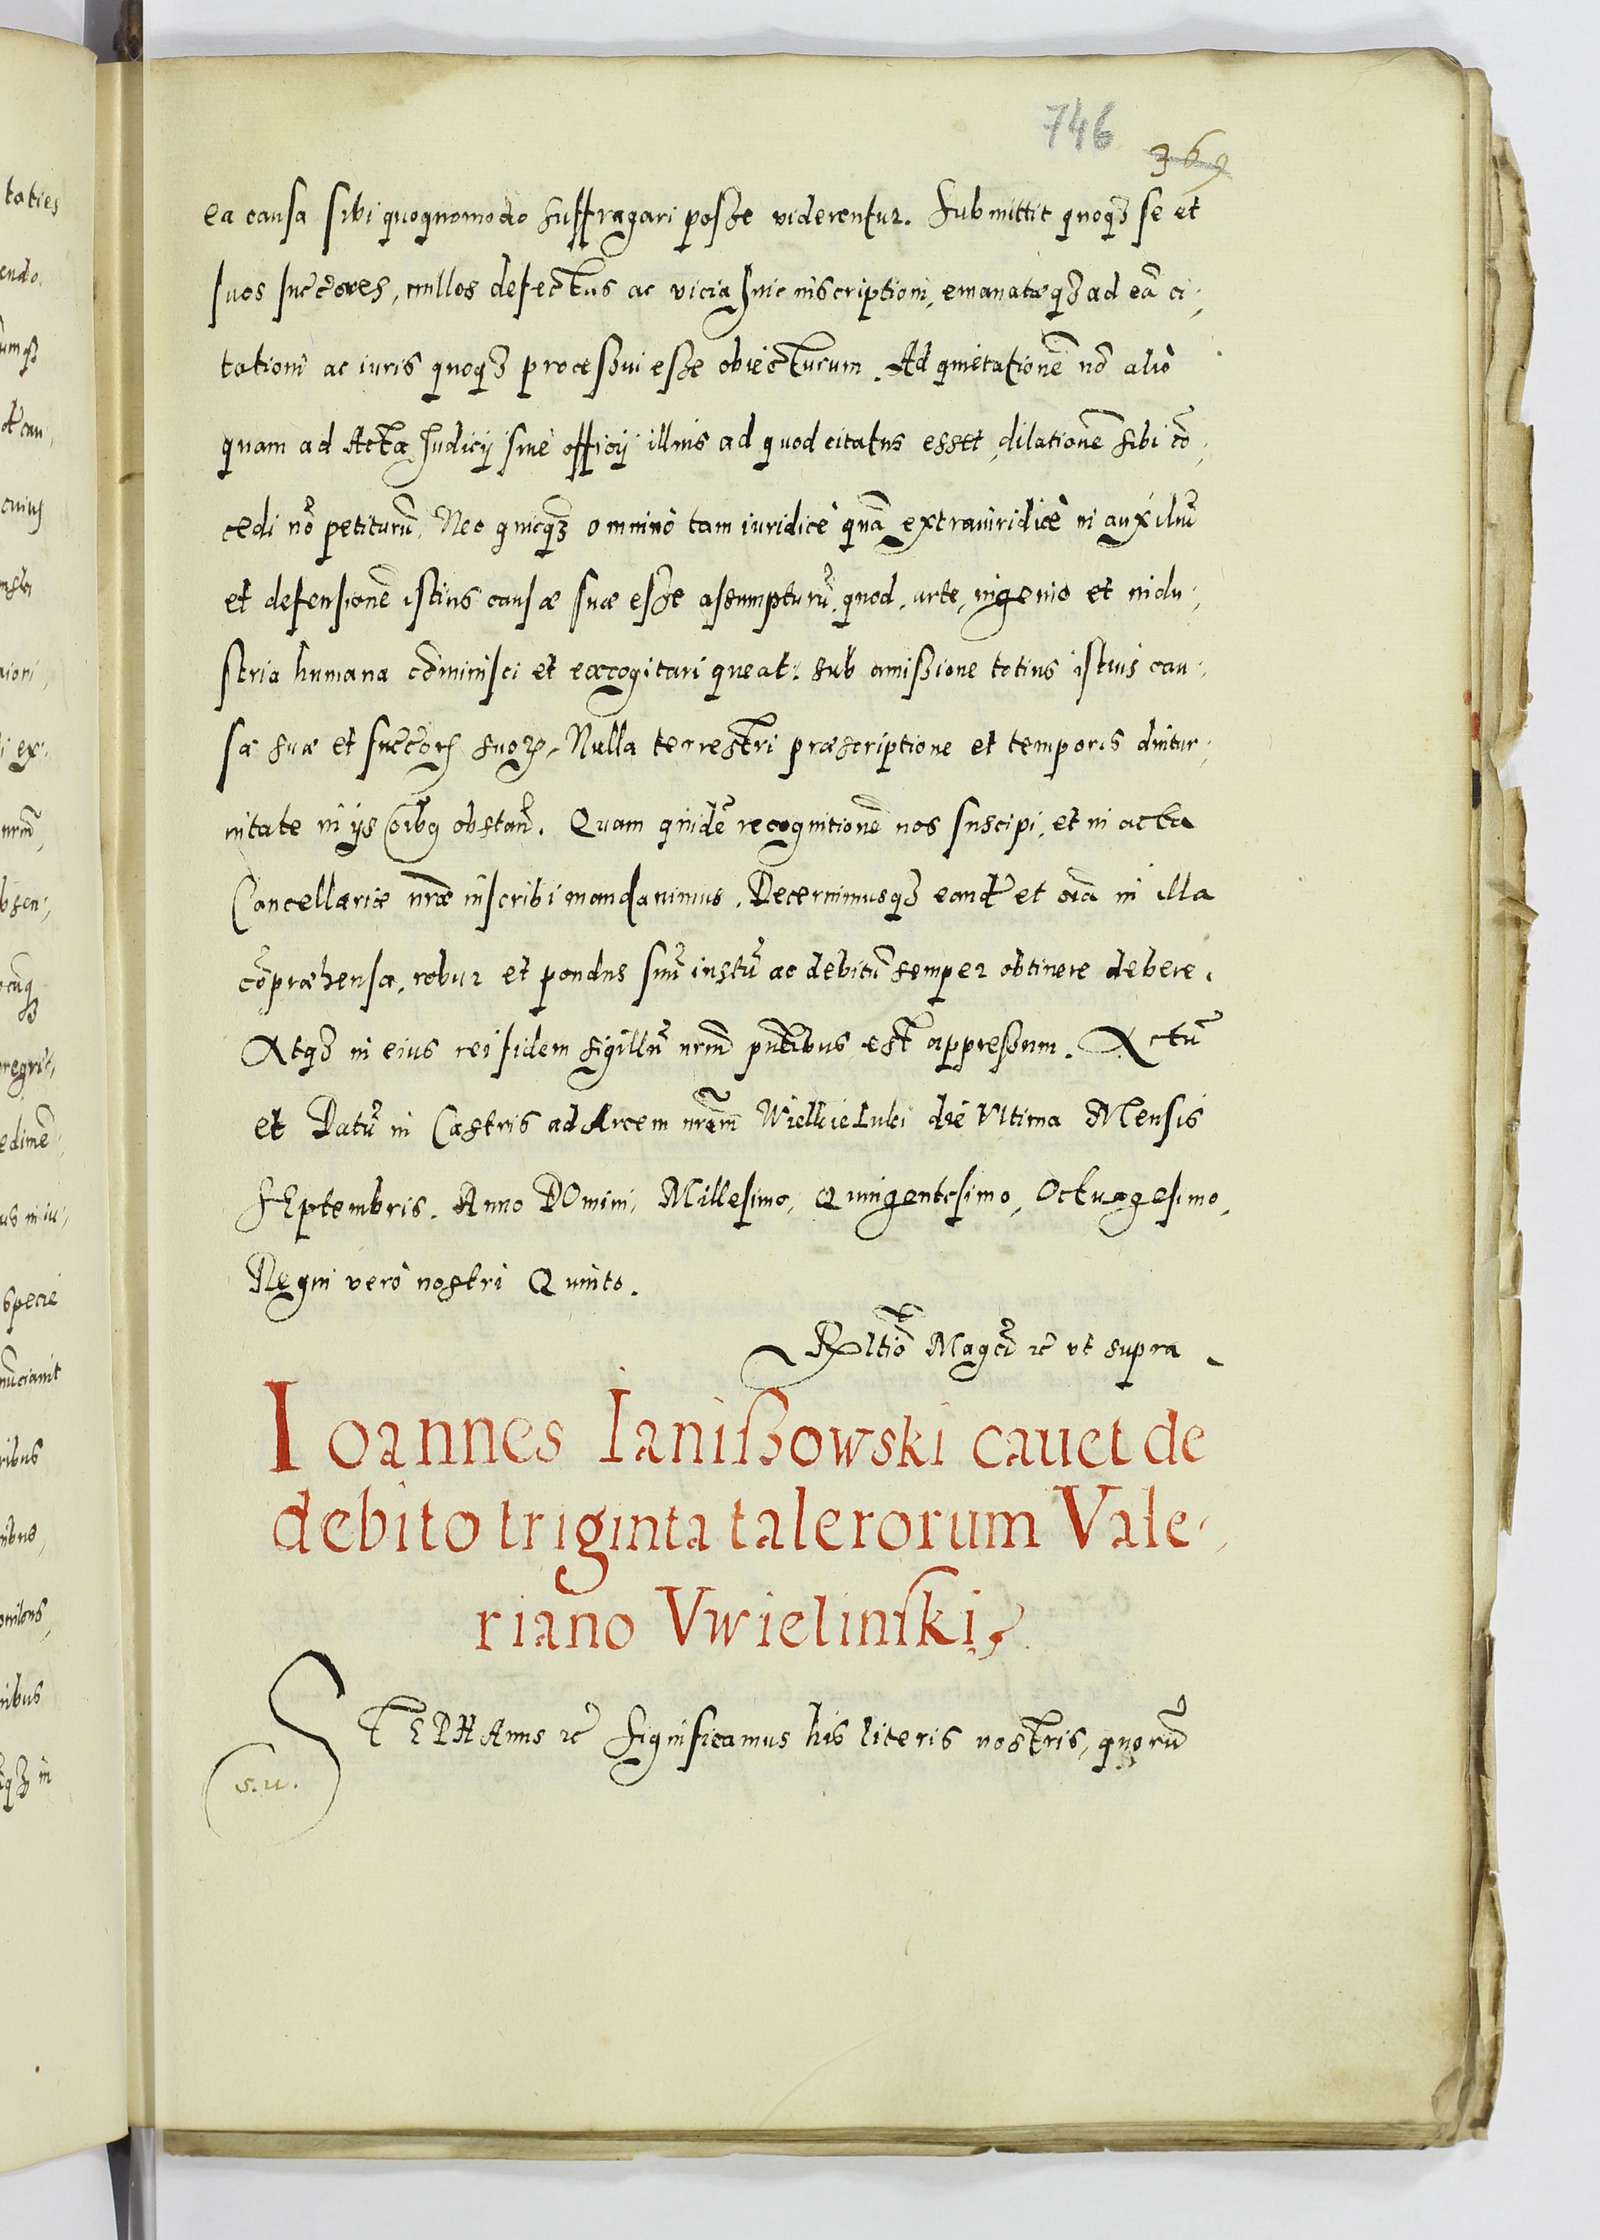 746
369
ea causa sibi quoquomodo suffragari posse viderentur. Submittit quoq3 se et
suos succores, nullos defectus ac vicia huic inscriptioni, emanatæq3 ad eã ci-
tationi ac iuris quoq3 processui esse obiecturum. Ad quietationẽ nõ aliò
quam ad Acta Iudicij sive officij illius ad quod citatus esset, dilationẽ sibi cõ-
cedi nõ petiturũ. Nec quicq3 omninò tam iuridicè quã extraiuridicè in auxiliũ
et defensionẽ istius causæ suæ esse assumpturũ, quod, arte, ingenio et indu-
stria humana cõminisci et excogitari queat: sub amissione totius istius cau-
sæ suæ et succorũ suorũ. Nulla terrestri præscriptione et temporis diutur-
nitate in ijs oibq obstanȓ. Quam quidẽ recognitionẽ nos suscipi, et in acta
Cancellariæ nræ inscribi mandavimus. Decernimusq3 eandẽ et oiã in illa
cõpræhensa, robur et pondus suũ iustũ ac debitũ semper obtinere debere.
Atq3 in eius rei fidem sigillũ nrm̃ pñtibus est appressum. Actũ
et Datũ in Castris ad Arcem nram̃ Wielkie Luki die Ultima Mensis
SEptembris. Anno DOmini, Millesimo, Quingentesimo, Octuagesimo,
Regni verò nostri Quinto.
Rltio Magcĩ rc̃ ut supra
Ioannes Ianißowski cauet de
debito triginta talerorum Vale-
riano Vwielinski
STEPHAnus rc̃ Significamus his literis nostris, quorũ
s.u.